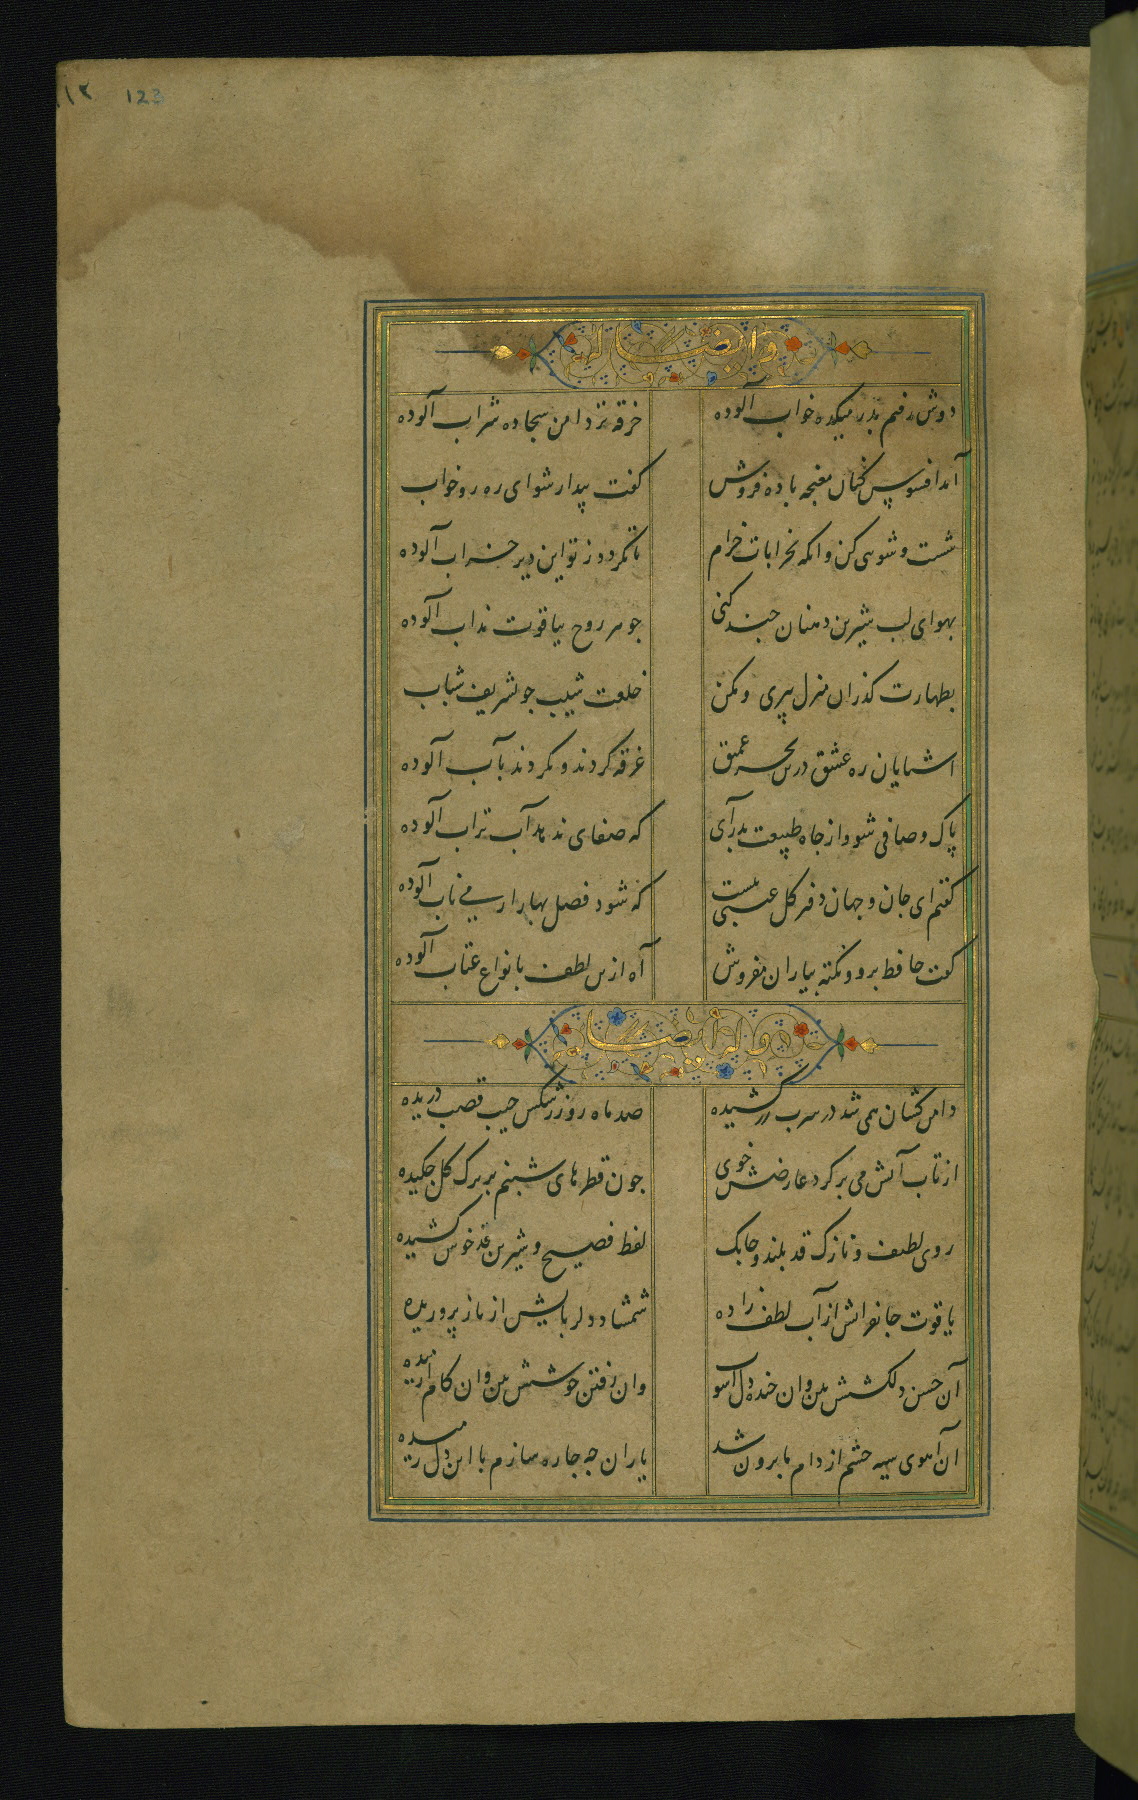 123
وایضا له
دوش رفتم بدر میکده خواب آلوده خرقه تر دامن سجاده شراب آلوده
آمد افسوس کنان مغبچه باده فروش کفت بیدار شو ای ره رو خواب
شست و شویی کن وانکه بخرابات خرام تا نکردد ز تو این دیر خراب آلوده
بهوای لب شیرین دهنان چند کنی جوهر روح بیاقوت مذاب آلوده
بطهارت کذران منزل پیری و مکن خلعت شیب جو تشریف شباب
اشنایان ره عشق درین بحر عمیق غرقه کردند و نکردند بآب آلوده
پاک و صافی شو و از جاه طبیعت بدر آی که صفای ندهد آب تراب آلوده
کفتم ای جان و جهان دفتر کل عیبی نیست که شود فصل بهار از می ناب آلوده
کفت حافظ برو و نکته بیاران مفروش آه ازین لطف بانواع عتاب آلوده
وله ایضا
دامن کشان همی شد در شرب زر کشیده صد ماه رو ز رشکش جیب قصب دریده
از تاب آتش می بر کرد عارضش خوی جون قطرهای شبنم بر برک کل جکیده
روی لطیف و نازک قد بلند و جابک لفظ فصیح و شیرین خوش کشیده
یاقوت جانفزاش از آب لطف زاده شمشاد دلربایش از ناز پروریده
آن حسن دلکشش بین وان خنده دل آشوب وان رفتن خوشش بین وان کام آرمیده
آن آهوی سیه جشم از دام ما برون شد یاران جه جاره سازم با این دل رمیده